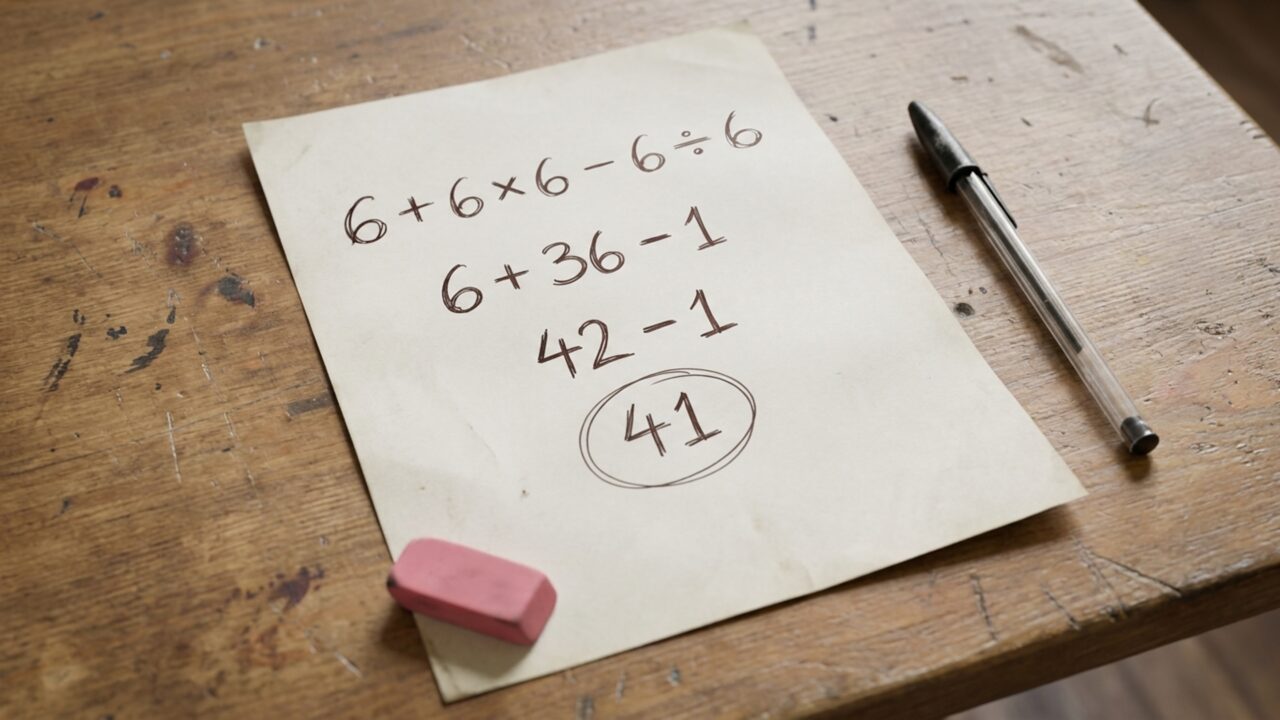 6 + 6 × 6 − 6 ÷ 6
6 + 36 − 1
42 − 1
41